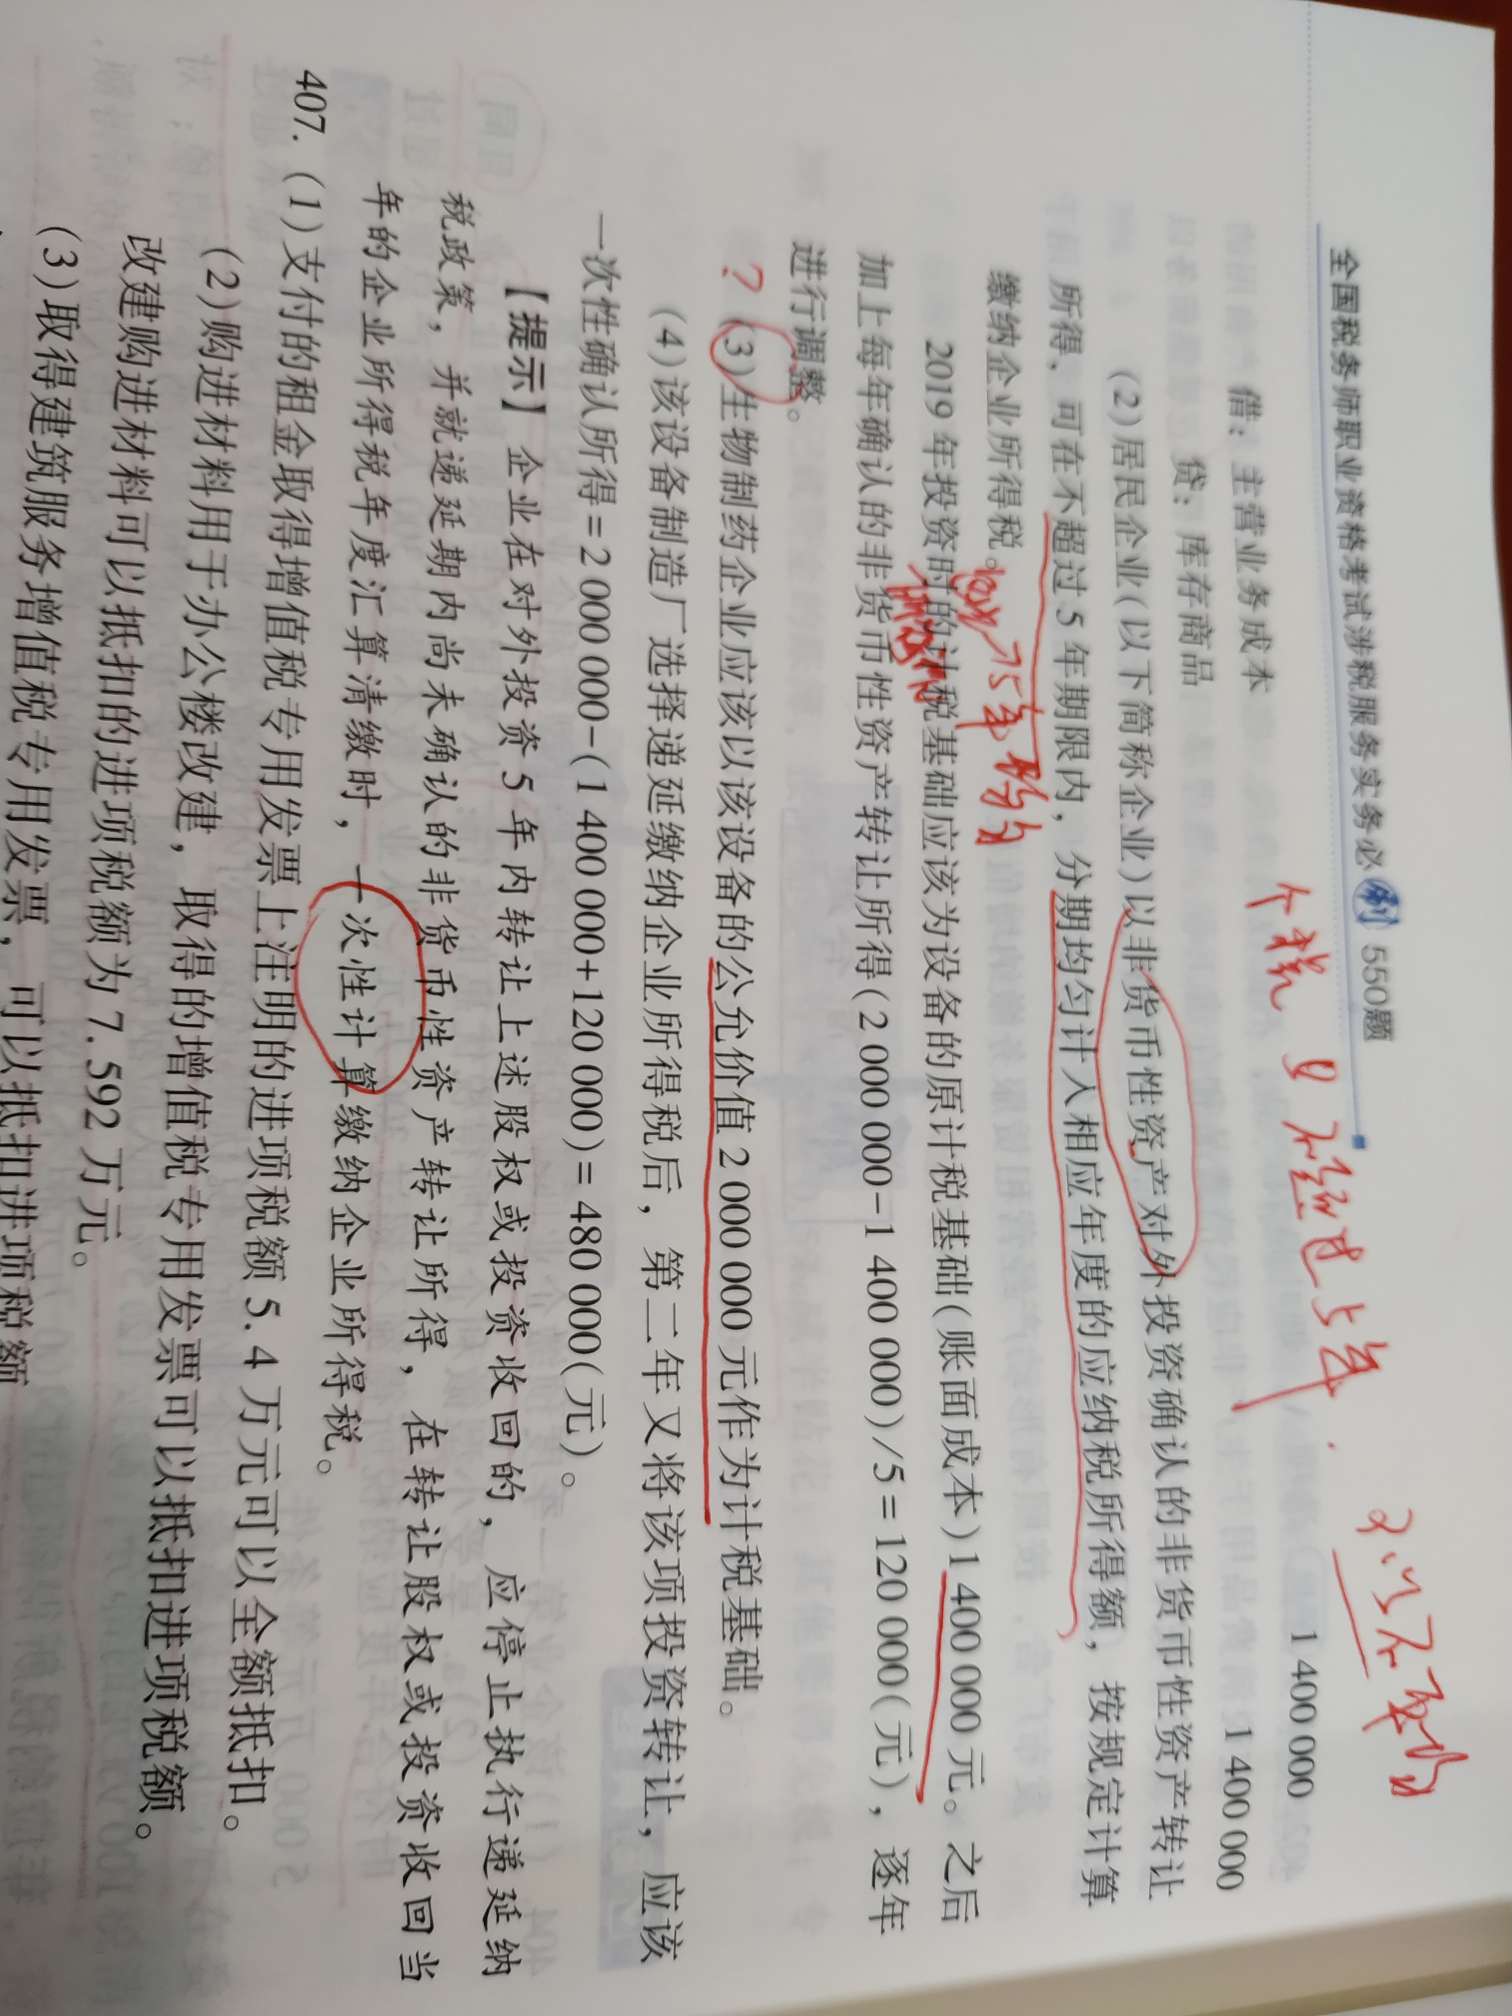 全国税务师职业资格考试涉税服务实务必刷550题
个税 只不超过5年.
可以不平均
借：主营业务成本 1 400 000
贷：库存商品 1 400 000
(2)居民企业(以下简称企业)以非货币性资产对外投资确认的非货币性资产转让
所得，可在不超过5年期限内，分期均匀计入相应年度的应纳税所得额，按规定计算
缴纳企业所得税。
2019年投资时的计税基础应该为设备的原计税基础(账面成本)1 400 000元。之后
加上每年确认的非货币性资产转让所得(2 000 000-1 400 000)/5=120 000(元)，逐年
进行调整。
？(3)生物制药企业应该以该设备的公允价值2 000 000元作为计税基础。
(4)该设备制造厂选择递延缴纳企业所得税后，第二年又将该项投资转让，应该
一次性确认所得=2 000 000-(1 400 000+120 000)=480 000(元)。
【提示】企业在对外投资5年内转让上述股权或投资收回的，应停止执行递延纳
税政策，并就递延期内尚未确认的非货币性资产转让所得，在转让股权或投资收回当
年的企业所得税年度汇算清缴时，一次性计算缴纳企业所得税。
407. (1)支付的租金取得增值税专用发票上注明的进项税额5.4万元可以全额抵扣。
(2)购进材料用于办公楼改建，取得的增值税专用发票可以抵扣进项税额。
改建购进材料可以抵扣的进项税额为7.592万元。
(3)取得建筑服务增值税专用发票，可以抵扣进项税额